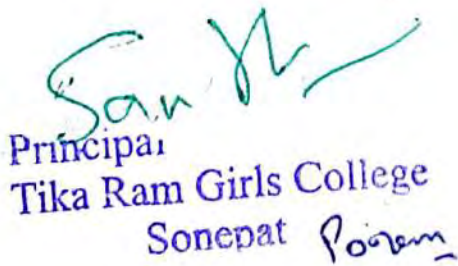 Principal
Tika Ram Girls College
Sonepat Poonam